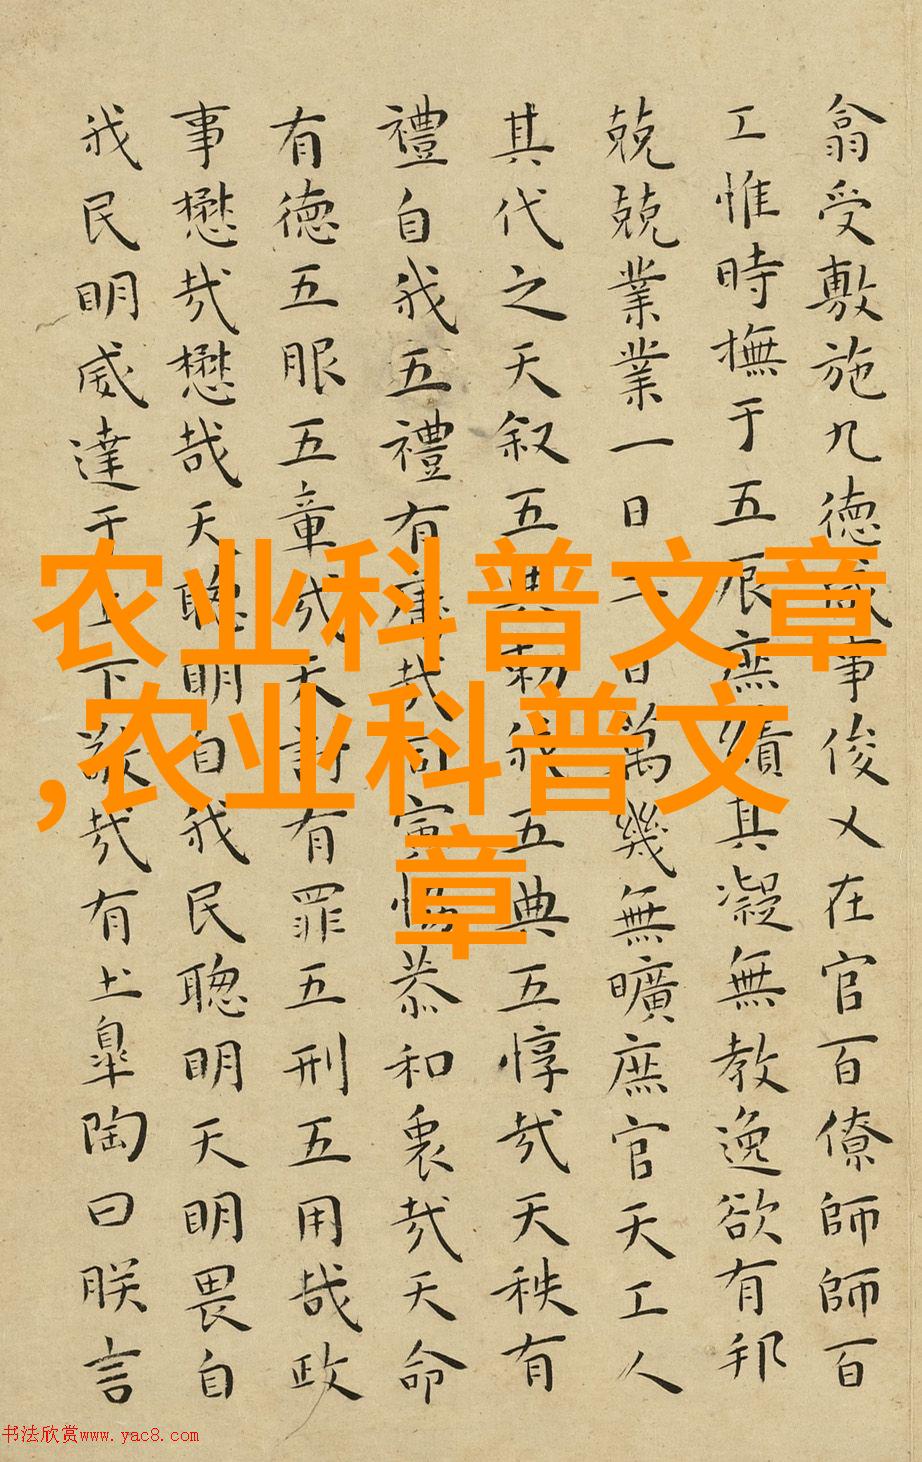 翕受敷施九德咸事俊乂在官百僚師師百
工惟時撫于五辰庶績其凝無教逸欲有邦
兢兢業業一日二日萬幾無曠庶官天工人
其代之天叙五典勑我五典五惇哉天秩有
禮自我五禮有庸哉同寅協恭和衷哉天命
有德五服五章哉天討有罪五刑五用哉政
事懋哉懋哉天聦明自我民聦明天明畏自
我民明威達于上下敬哉有土皐陶曰朕言
农业科普文章
,农业科普文
章
书法欣赏www.yac8.com